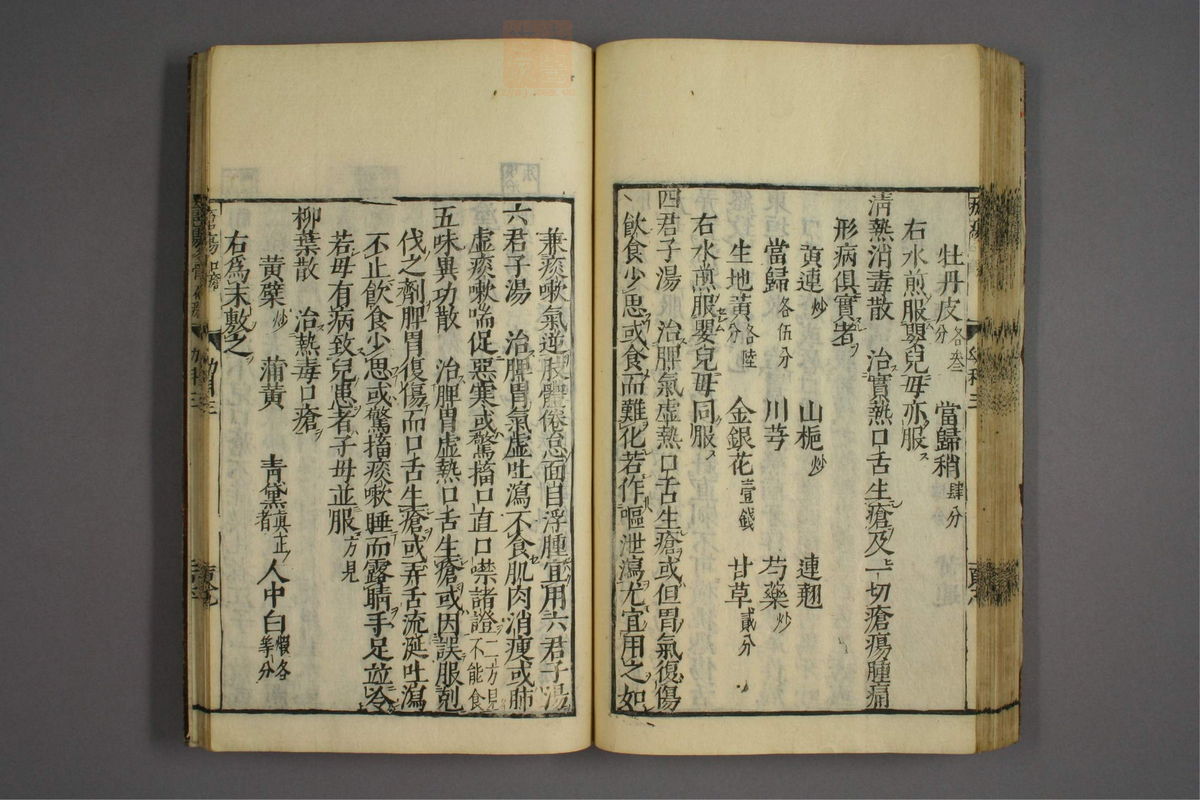 牡丹皮各叁分　當歸稍肆分
右水煎服嬰兒母亦服
清熱消毒散　治實熱口舌生瘡及一切瘡瘍腫痛
形病俱實者
黄連炒　山梔炒　連翹
當歸各伍分　川芎　芍藥炒
生地黄各陸分　金銀花壹錢　甘草貳分
右水煎服嬰兒母同服
四君子湯　治脾氣虚熱口舌生瘡或但胃氣復傷
飲食少思或食而難化若作嘔泄瀉尤宜用之如
兼痰嗽氣逆肢體倦怠面目浮腫宜用六君子湯
六君子湯　治脾胃氣虚吐瀉不食肌肉消瘦或肺
虚痰嗽喘促惡寒或驚搐口直口噤諸證二方見不能食
五味異功散　治脾胃虚熱口舌生瘡或因誤服剋
伐之劑脾胃復傷而口舌生瘡或弄舌流涎吐瀉
不止飲食少思或驚搐痰嗽睡而露睛手足並冷
若母有病致兒患者子母並服方見
柳葉散　治熱毒口瘡
黄蘗炒　蒲黄　青黛真正者　人中白煅各等分
右爲末敷之